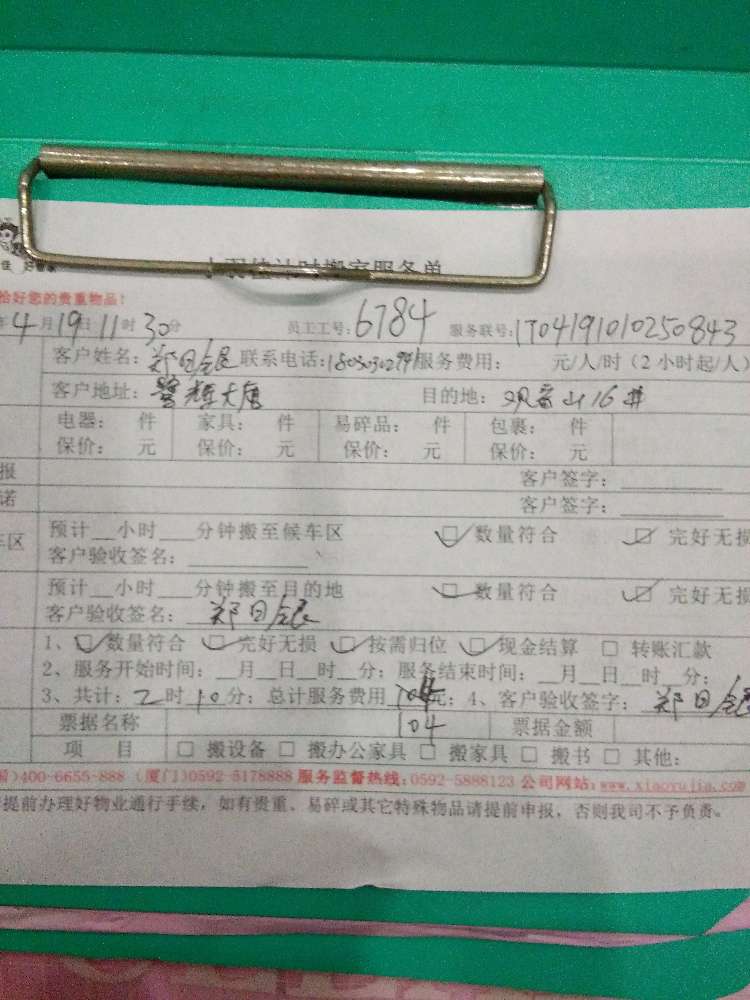 计时搬家服务单
恰好您的贵重物品!
年4月19日11时30分 员工工号:6784 服务联号:170419101025 0843
客户姓名:郑日银 联系电话: 服务费用: 元/人/时(2小时起/人)
客户地址:鹭辉大厦 目的地:观音山16#
电器: 件 家具: 件 易碎品: 件 包裹: 件
保价: 元 保价: 元 保价: 元 保价: 元
报 客户签字:
诺 客户签字:
车区 预计__小时___分钟搬至候车区 数量符合 完好无损
客户验收签名:
预计__小时___分钟搬至目的地 数量符合 完好无损
客户验收签名: 郑日银
1、数量符合 完好无损 按需归位 现金结算 转账汇款
2、服务开始时间:__月__日__时__分;服务结束时间:__月__日__时__分;
3、共计:2时10分;总计服务费用 元;4、客户验收签字:郑日银
票据名称 104 票据金额
项 目 搬设备 搬办公家具 搬家具 搬书 其他:
)400-6655-888 (厦门)0592-5178888 服务监督热线:0592-5888123 公司网站:www.xiaoyujia.com
提前办理好物业通行手续,如有贵重、易碎或其它特殊物品请提前申报,否则我司不予负责。